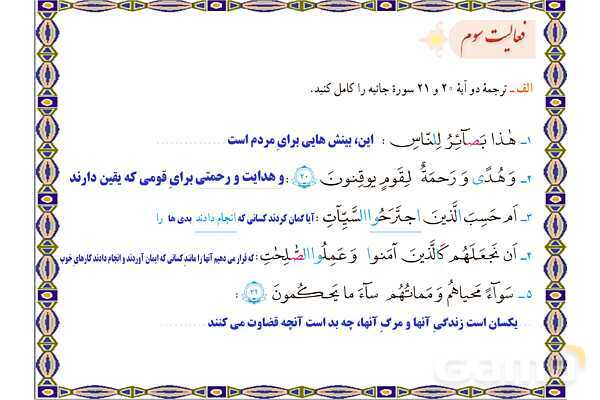 فعالیت سوم
الف ـ ترجمهٔ دو آیهٔ ۲۰ و ۲۱ سورهٔ جاثیه را کامل کنید.
۱ـ هٰذا بَصآئِرُ لِلنّاسِ : این، بینش هایی برایِ مردم است
۲ـ وَ هُدًی وَ رَحمَةٌ لِقَومٍ یوقِنونَ ۲۰ : و هدایت و رحمتی برایِ قومی که یقین دارند
۳ـ اَم حَسِبَ الَّذینَ اجتَرَحُوا السَّیِّآتِ : آیا گمان کردند کسانی که انجام دادند بدی ها را
۴ـ اَن نَجعَلَهُم کَالَّذینَ آمَنوا وَ عَمِلُوا الصّٰلِحٰتِ : که قرار می دهیم آنها را مانند کسانی که ایمان آوردند و انجام دادند کارهای خوب
۵ـ سَوآءً مَحیاهُم وَ مَماتُهُم سآءَ ما یَحکُمونَ ۲۱ :
یکسان است زندگیِ آنها و مرگِ آنها، چه بد است آنچه قضاوت می کنند
Gama